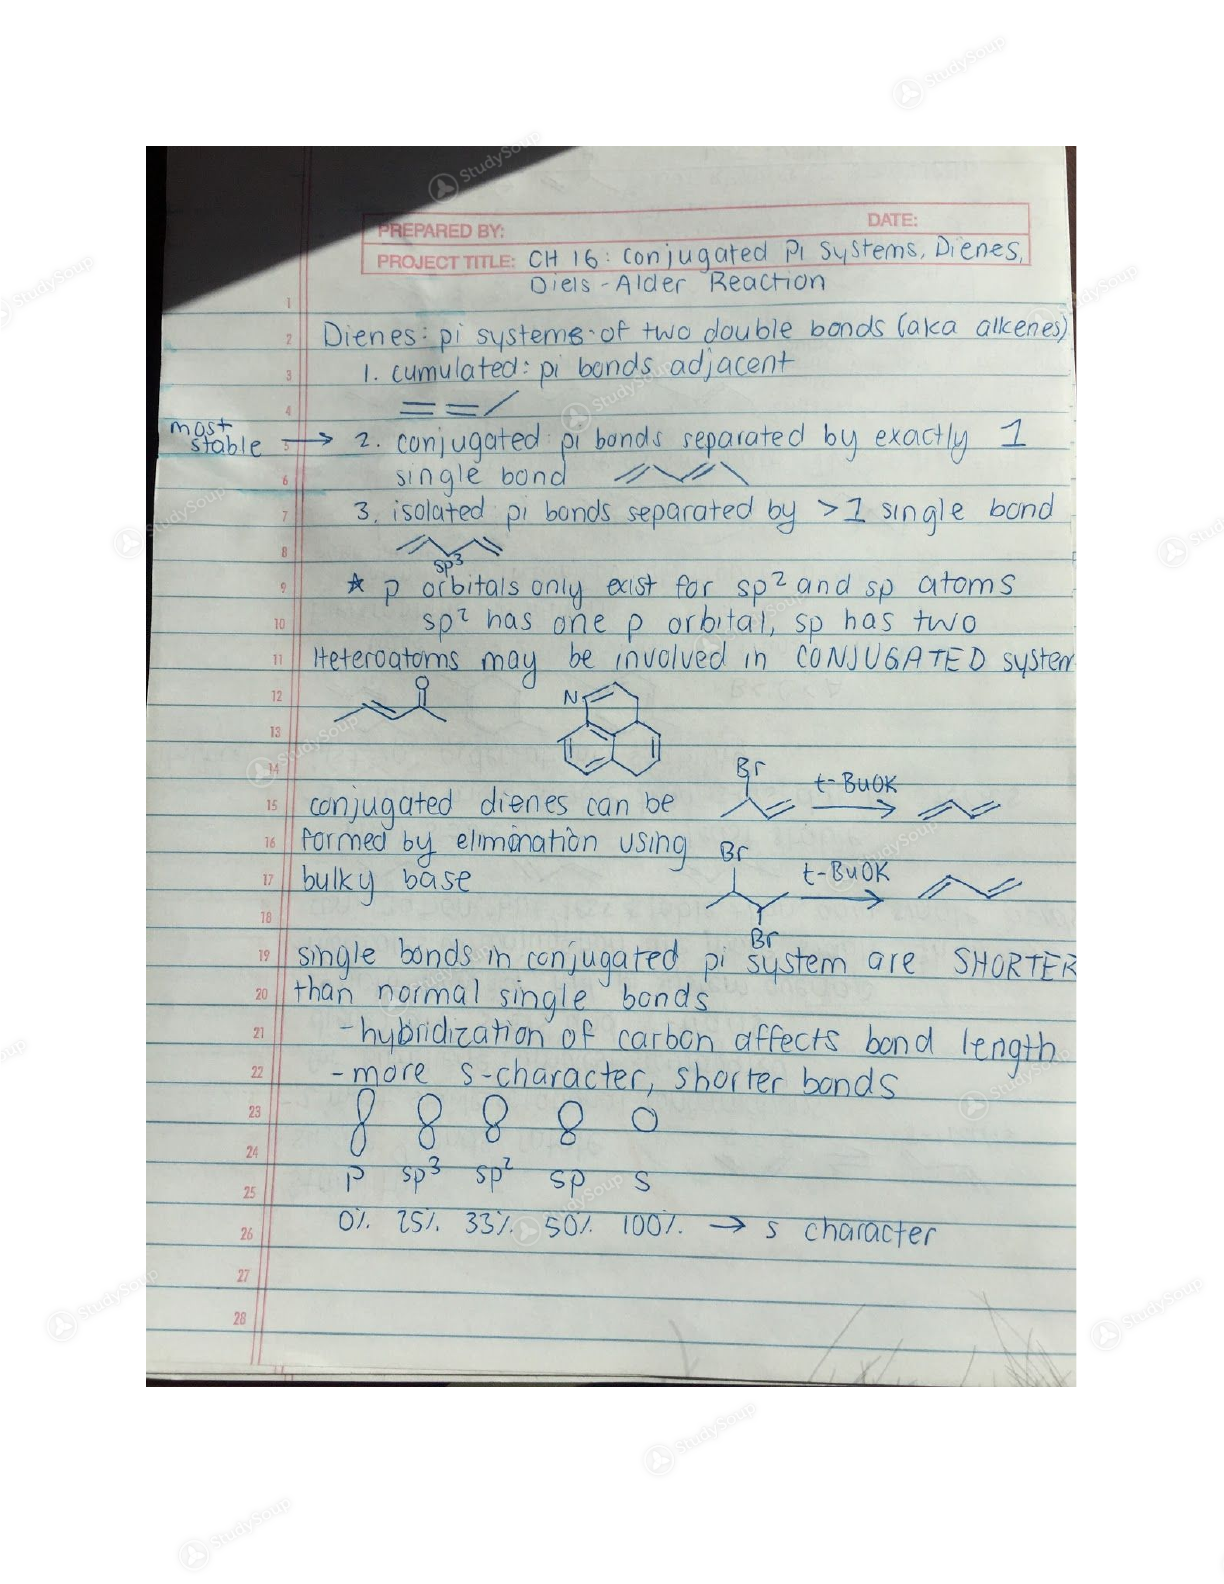 PREPARED BY: DATE:
PROJECT TITLE: CH 16: Conjugated Pi Systems, Dienes,
Diels-Alder Reaction
Dienes: pi systems of two double bonds (aka alkenes)
1. cumulated: pi bonds adjacent
most
stable → 2. conjugated: pi bonds separated by exactly 1
single bond
3. isolated pi bonds separated by >1 single bond
sp3
★ p orbitals only exist for sp2 and sp atoms
sp2 has one p orbital, sp has two
Heteroatoms may be involved in CONJUGATED system
O N
Br t-BuOK
conjugated dienes can be
formed by elimination using
Br t-BuOK
bulky base
Br
single bonds in conjugated pi system are SHORTER
than normal single bonds
-hybridization of carbon affects bond length
-more s-character, shorter bonds
p sp3 sp2 sp s
0% 25% 33% 50% 100% → s character
1
2
3
4
5
6
7
8
9
10
11
12
13
14
15
16
17
18
19
20
21
22
23
24
25
26
27
28
StudySoup